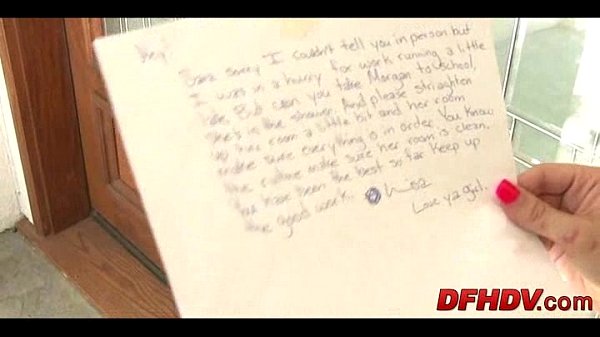 sorry I couldn't tell you in person but
I was in a hurry for work running a little
late. But can you take Morgan to school,
she's in the shower. And please straighten
up her room a little bit and her room
make sure everything is in order. You know
the routine make sure her room is clean.
You have been the best so far keep up
the good work.
Love ya girl.
DFHDV.com